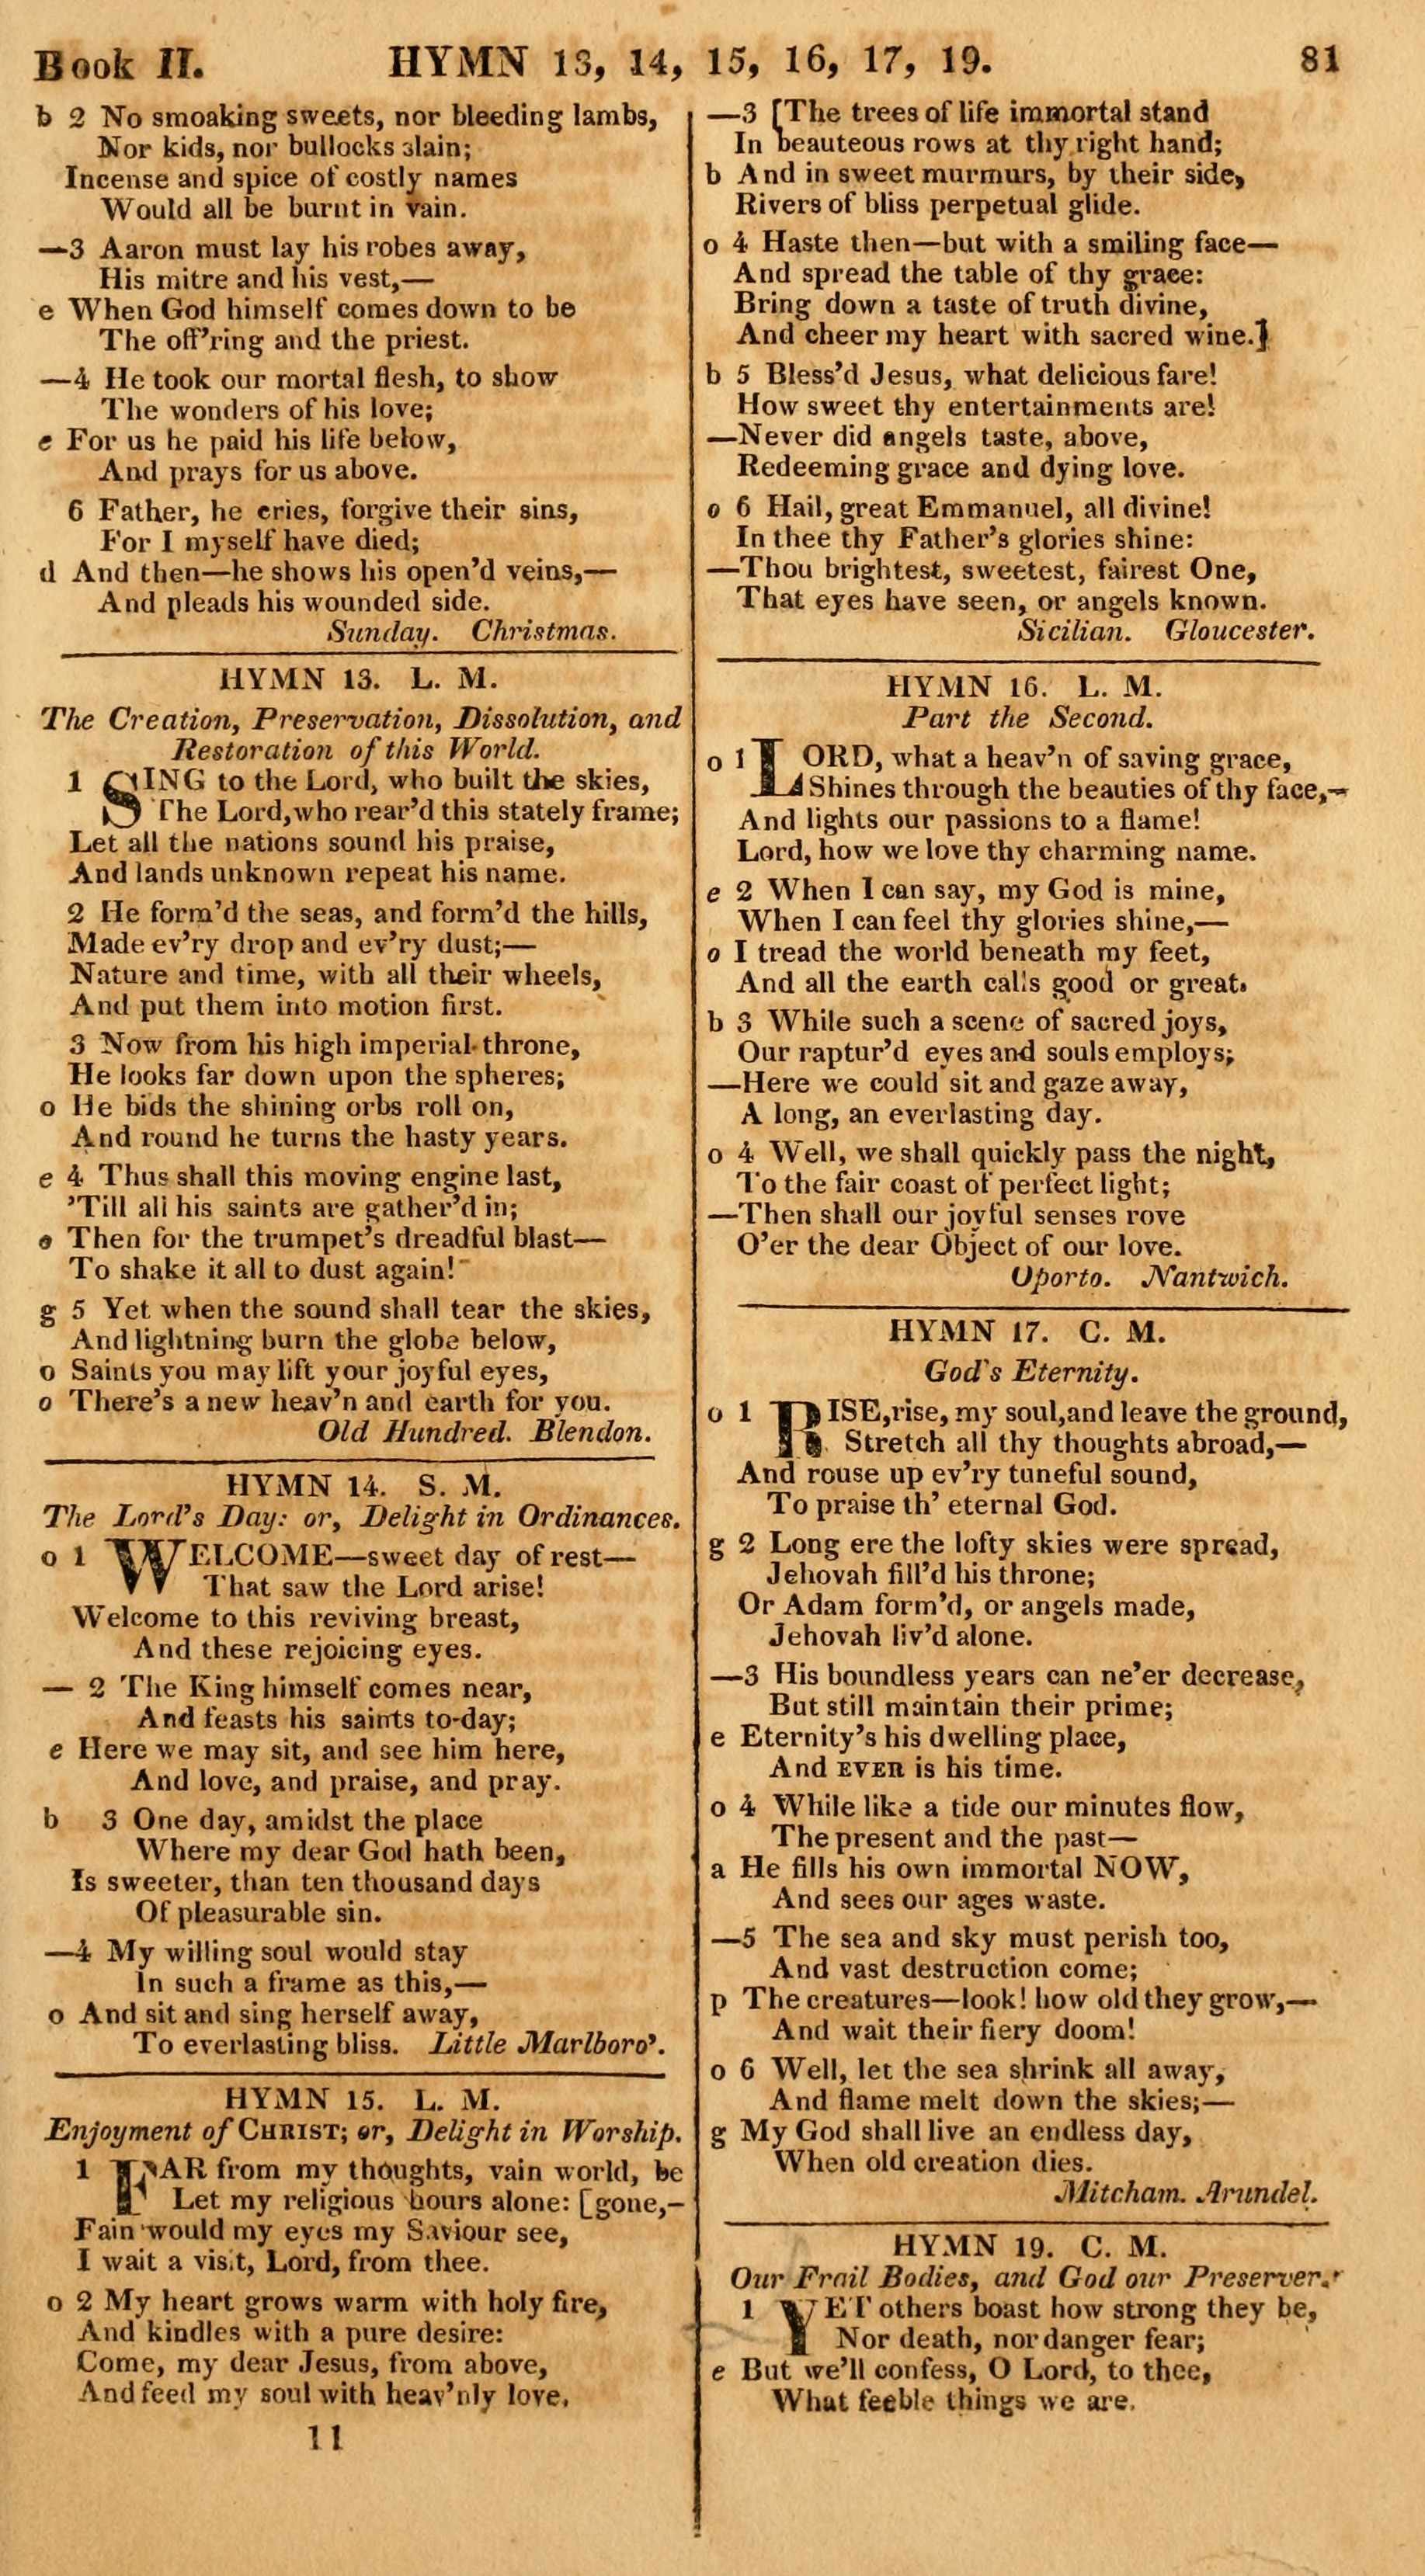 Book II. HYMN 13, 14, 15, 16, 17, 19. 81
b 2 No smoaking sweets, nor bleeding lambs,
Nor kids, nor bullocks slain;
Incense and spice of costly names
Would all be burnt in vain.
—3 Aaron must lay his robes away,
His mitre and his vest,—
e When God himself comes down to be
The off'ring and the priest.
—4 He took our mortal flesh, to show
The wonders of his love;
e For us he paid his life below,
And prays for us above.
6 Father, he cries, forgive their sins,
For I myself have died;
d And then—he shows his open'd veins,—
And pleads his wounded side.
Sunday. Christmas.
HYMN 13. L. M.
The Creation, Preservation, Dissolution, and
Restoration of this World.
1 SING to the Lord, who built the skies,
The Lord, who rear'd this stately frame;
Let all the nations sound his praise,
And lands unknown repeat his name.
2 He form'd the seas, and form'd the hills,
Made ev'ry drop and ev'ry dust;—
Nature and time, with all their wheels,
And put them into motion first.
3 Now from his high imperial throne,
He looks far down upon the spheres;
o He bids the shining orbs roll on,
And round he turns the hasty years.
e 4 Thus shall this moving engine last,
'Till all his saints are gather'd in;
o Then for the trumpet's dreadful blast—
To shake it all to dust again!
g 5 Yet when the sound shall tear the skies,
And lightning burn the globe below,
o Saints you may lift your joyful eyes,
o There's a new heav'n and earth for you.
Old Hundred. Blendon.
HYMN 14. S. M.
The Lord's Day: or, Delight in Ordinances.
o 1 WELCOME—sweet day of rest—
That saw the Lord arise!
Welcome to this reviving breast,
And these rejoicing eyes.
— 2 The King himself comes near,
And feasts his saints to-day;
e Here we may sit, and see him here,
And love, and praise, and pray.
b 3 One day, amidst the place
Where my dear God hath been,
Is sweeter, than ten thousand days
Of pleasurable sin.
—4 My willing soul would stay
In such a frame as this,—
o And sit and sing herself away,
To everlasting bliss. Little Marlboro'.
HYMN 15. L. M.
Enjoyment of CHRIST; or, Delight in Worship.
1 FAR from my thoughts, vain world, be
Let my religious hours alone: [gone,—
Fain would my eyes my Saviour see,
I wait a visit, Lord, from thee.
o 2 My heart grows warm with holy fire,
And kindles with a pure desire:
Come, my dear Jesus, from above,
And feed my soul with heav'nly love.
11
—3 [The trees of life immortal stand
In beauteous rows at thy right hand;
b And in sweet murmurs, by their side,
Rivers of bliss perpetual glide.
o 4 Haste then—but with a smiling face—
And spread the table of thy grace:
Bring down a taste of truth divine,
And cheer my heart with sacred wine.]
b 5 Bless'd Jesus, what delicious fare!
How sweet thy entertainments are!
—Never did angels taste, above,
Redeeming grace and dying love.
o 6 Hail, great Emmanuel, all divine!
In thee thy Father's glories shine:
—Thou brightest, sweetest, fairest One,
That eyes have seen, or angels known.
Sicilian. Gloucester.
HYMN 16. L. M.
Part the Second.
o 1 LORD, what a heav'n of saving grace,
Shines through the beauties of thy face,—
And lights our passions to a flame!
Lord, how we love thy charming name.
e 2 When I can say, my God is mine,
When I can feel thy glories shine,—
o I tread the world beneath my feet,
And all the earth calls good or great.
b 3 While such a scene of sacred joys,
Our raptur'd eyes and souls employs;
—Here we could sit and gaze away,
A long, an everlasting day.
o 4 Well, we shall quickly pass the night,
To the fair coast of perfect light;
—Then shall our joyful senses rove
O'er the dear Object of our love.
Oporto. Nantwich.
HYMN 17. C. M.
God's Eternity.
o 1 RISE, rise, my soul, and leave the ground,
Stretch all thy thoughts abroad,—
And rouse up ev'ry tuneful sound,
To praise th' eternal God.
g 2 Long ere the lofty skies were spread,
Jehovah fill'd his throne;
Or Adam form'd, or angels made,
Jehovah liv'd alone.
—3 His boundless years can ne'er decrease,
But still maintain their prime;
e Eternity's his dwelling place,
And EVER is his time.
o 4 While like a tide our minutes flow,
The present and the past—
a He fills his own immortal NOW,
And sees our ages waste.
—5 The sea and sky must perish too,
And vast destruction come;
p The creatures—look! how old they grow,—
And wait their fiery doom!
o 6 Well, let the sea shrink all away,
And flame melt down the skies;—
g My God shall live an endless day,
When old creation dies.
Mitcham. Arundel.
HYMN 19. C. M.
Our Frail Bodies, and God our Preserver.
1 YET others boast how strong they be,
Nor death, nor danger fear;
e But we'll confess, O Lord, to thee,
What feeble things we are.